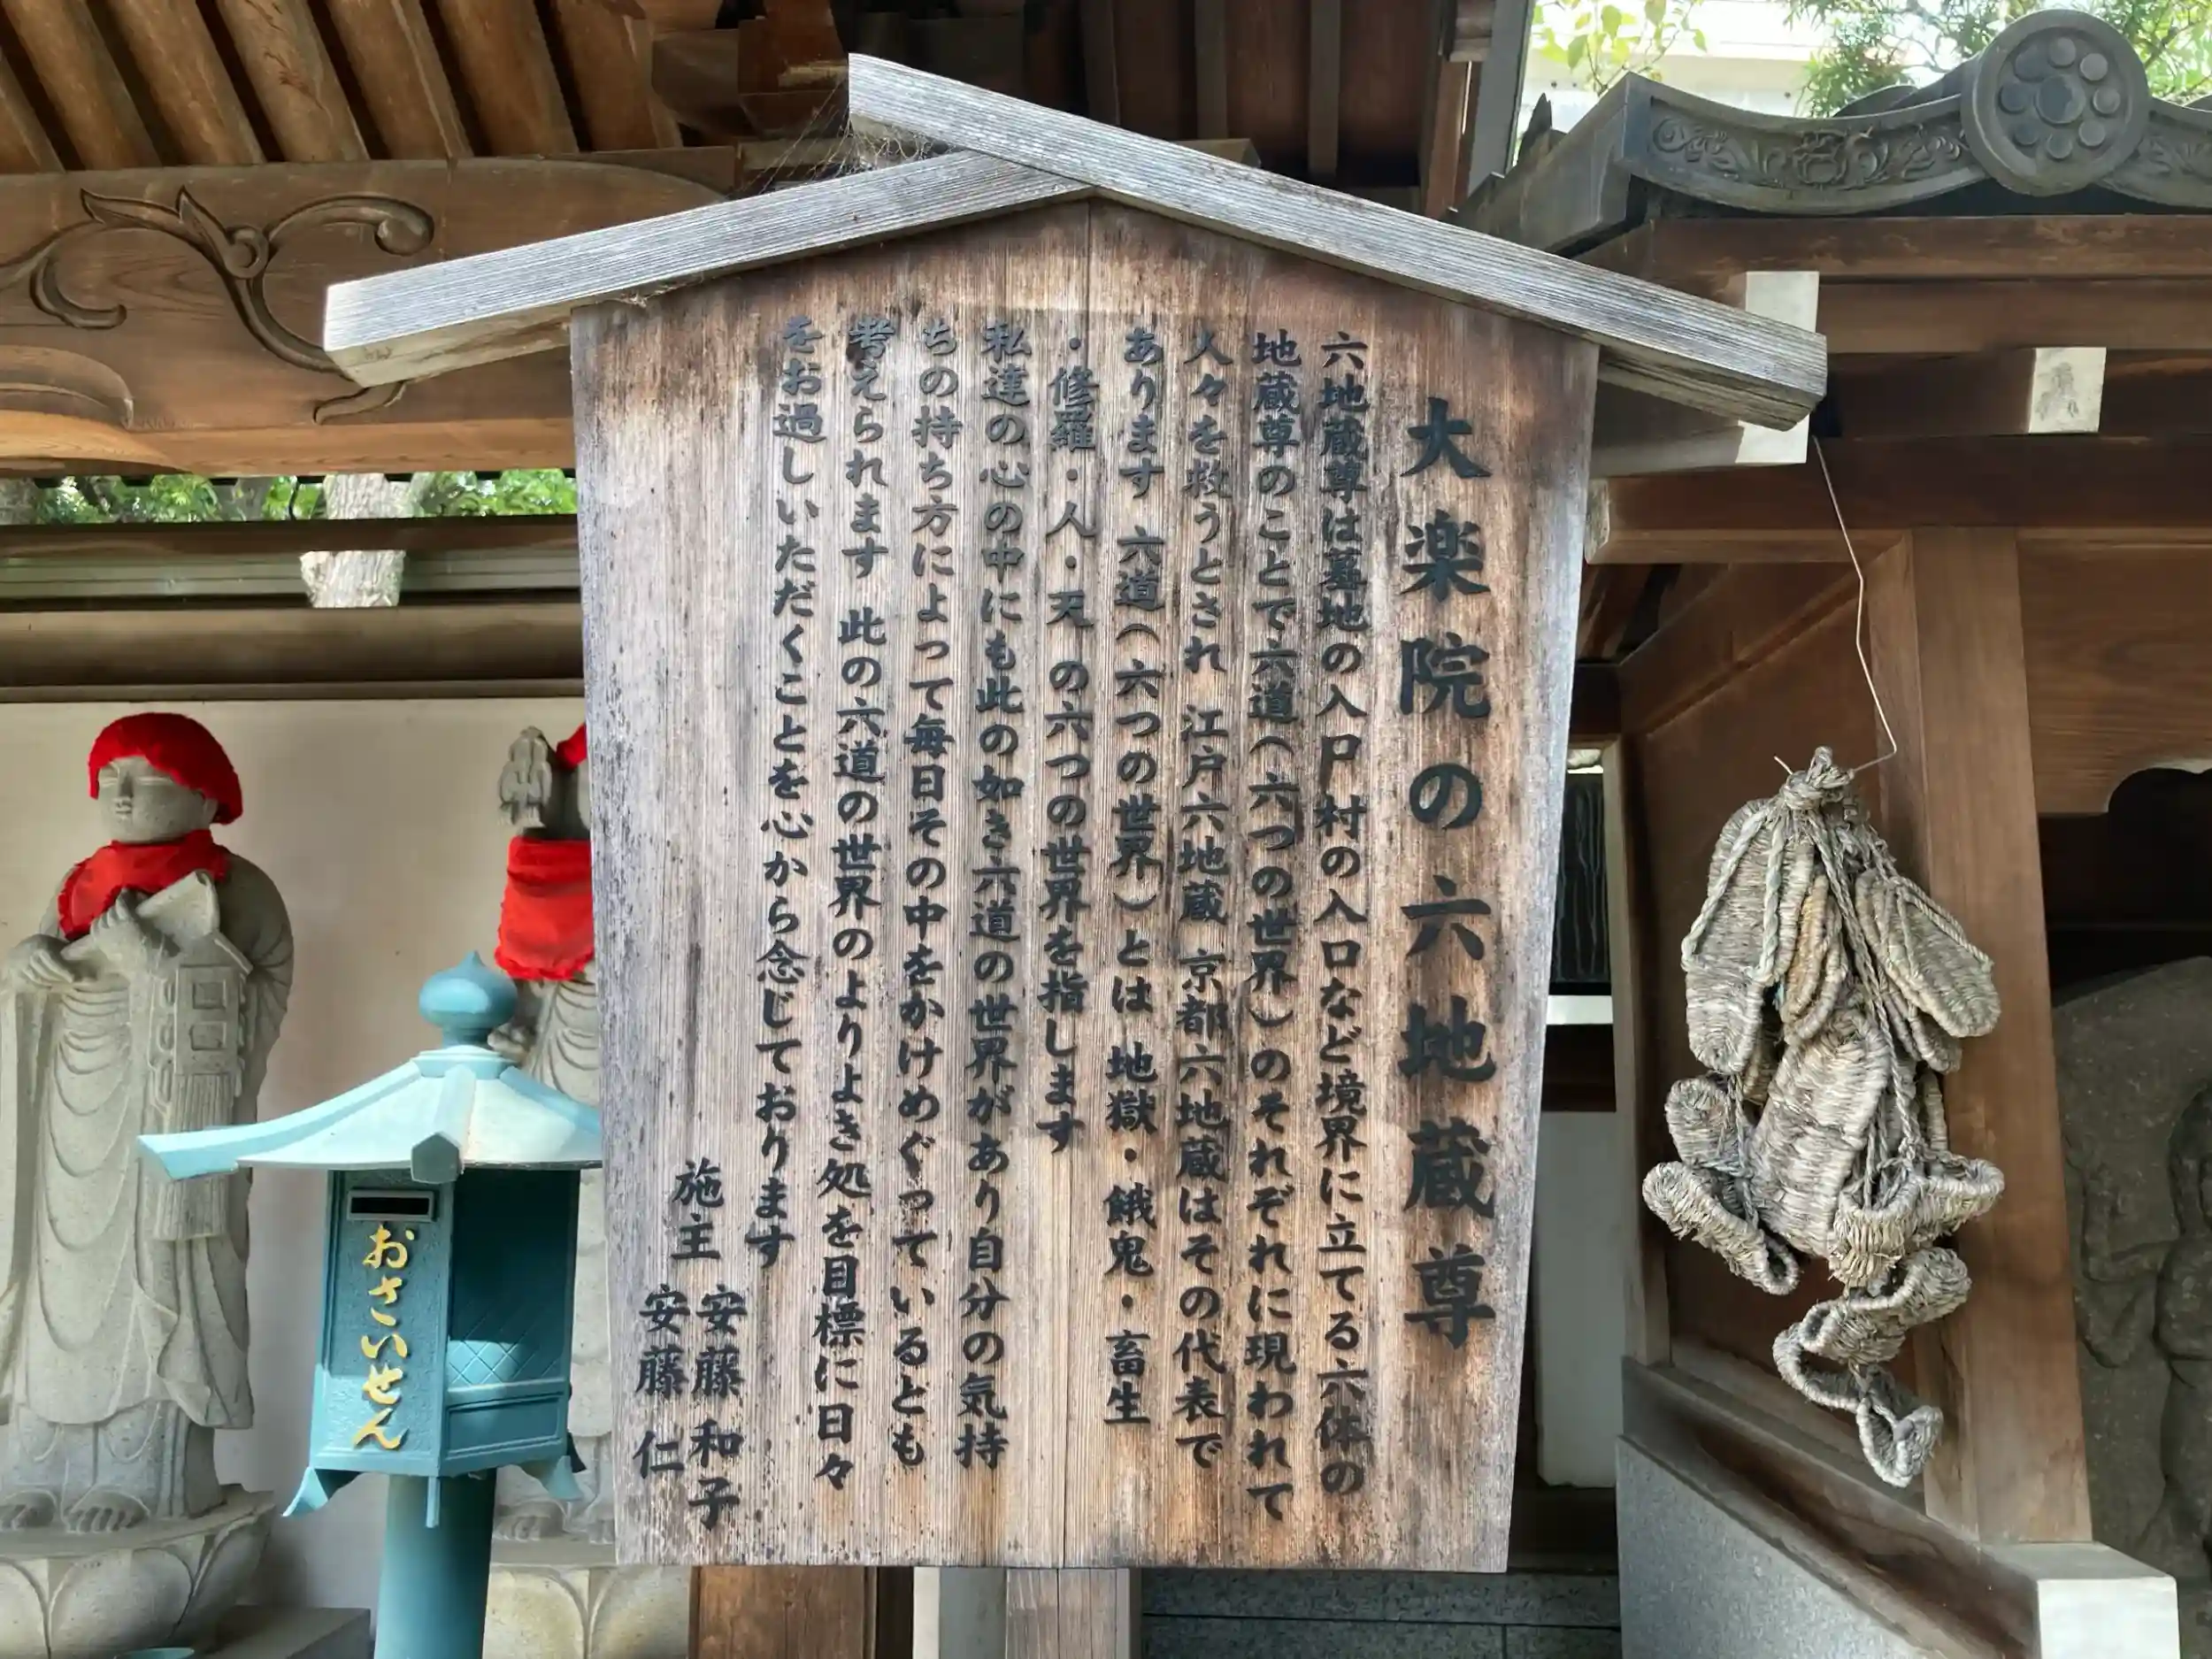 大楽院の六地蔵尊
六地蔵尊は墓地の入戸村の入口など境界に立てる六体の
地蔵尊のことで六道(六つの世界)のそれぞれに現われて
人々を救うとされ 江戸六地蔵 京都六地蔵はその代表で
あります 六道(六つの世界)とは 地獄・餓鬼・畜生
・修羅・人・天 の六つの世界を指します
私達の心の中にも此の如き六道の世界があり自分の気持
ちの持ち方によって毎日その中をかけめぐっているとも
考えられます 此の六道の世界のよりよき処を目標に日々
をお過しいただくことを心から念じております
施主 安藤 和子
安藤 仁
おさいせん